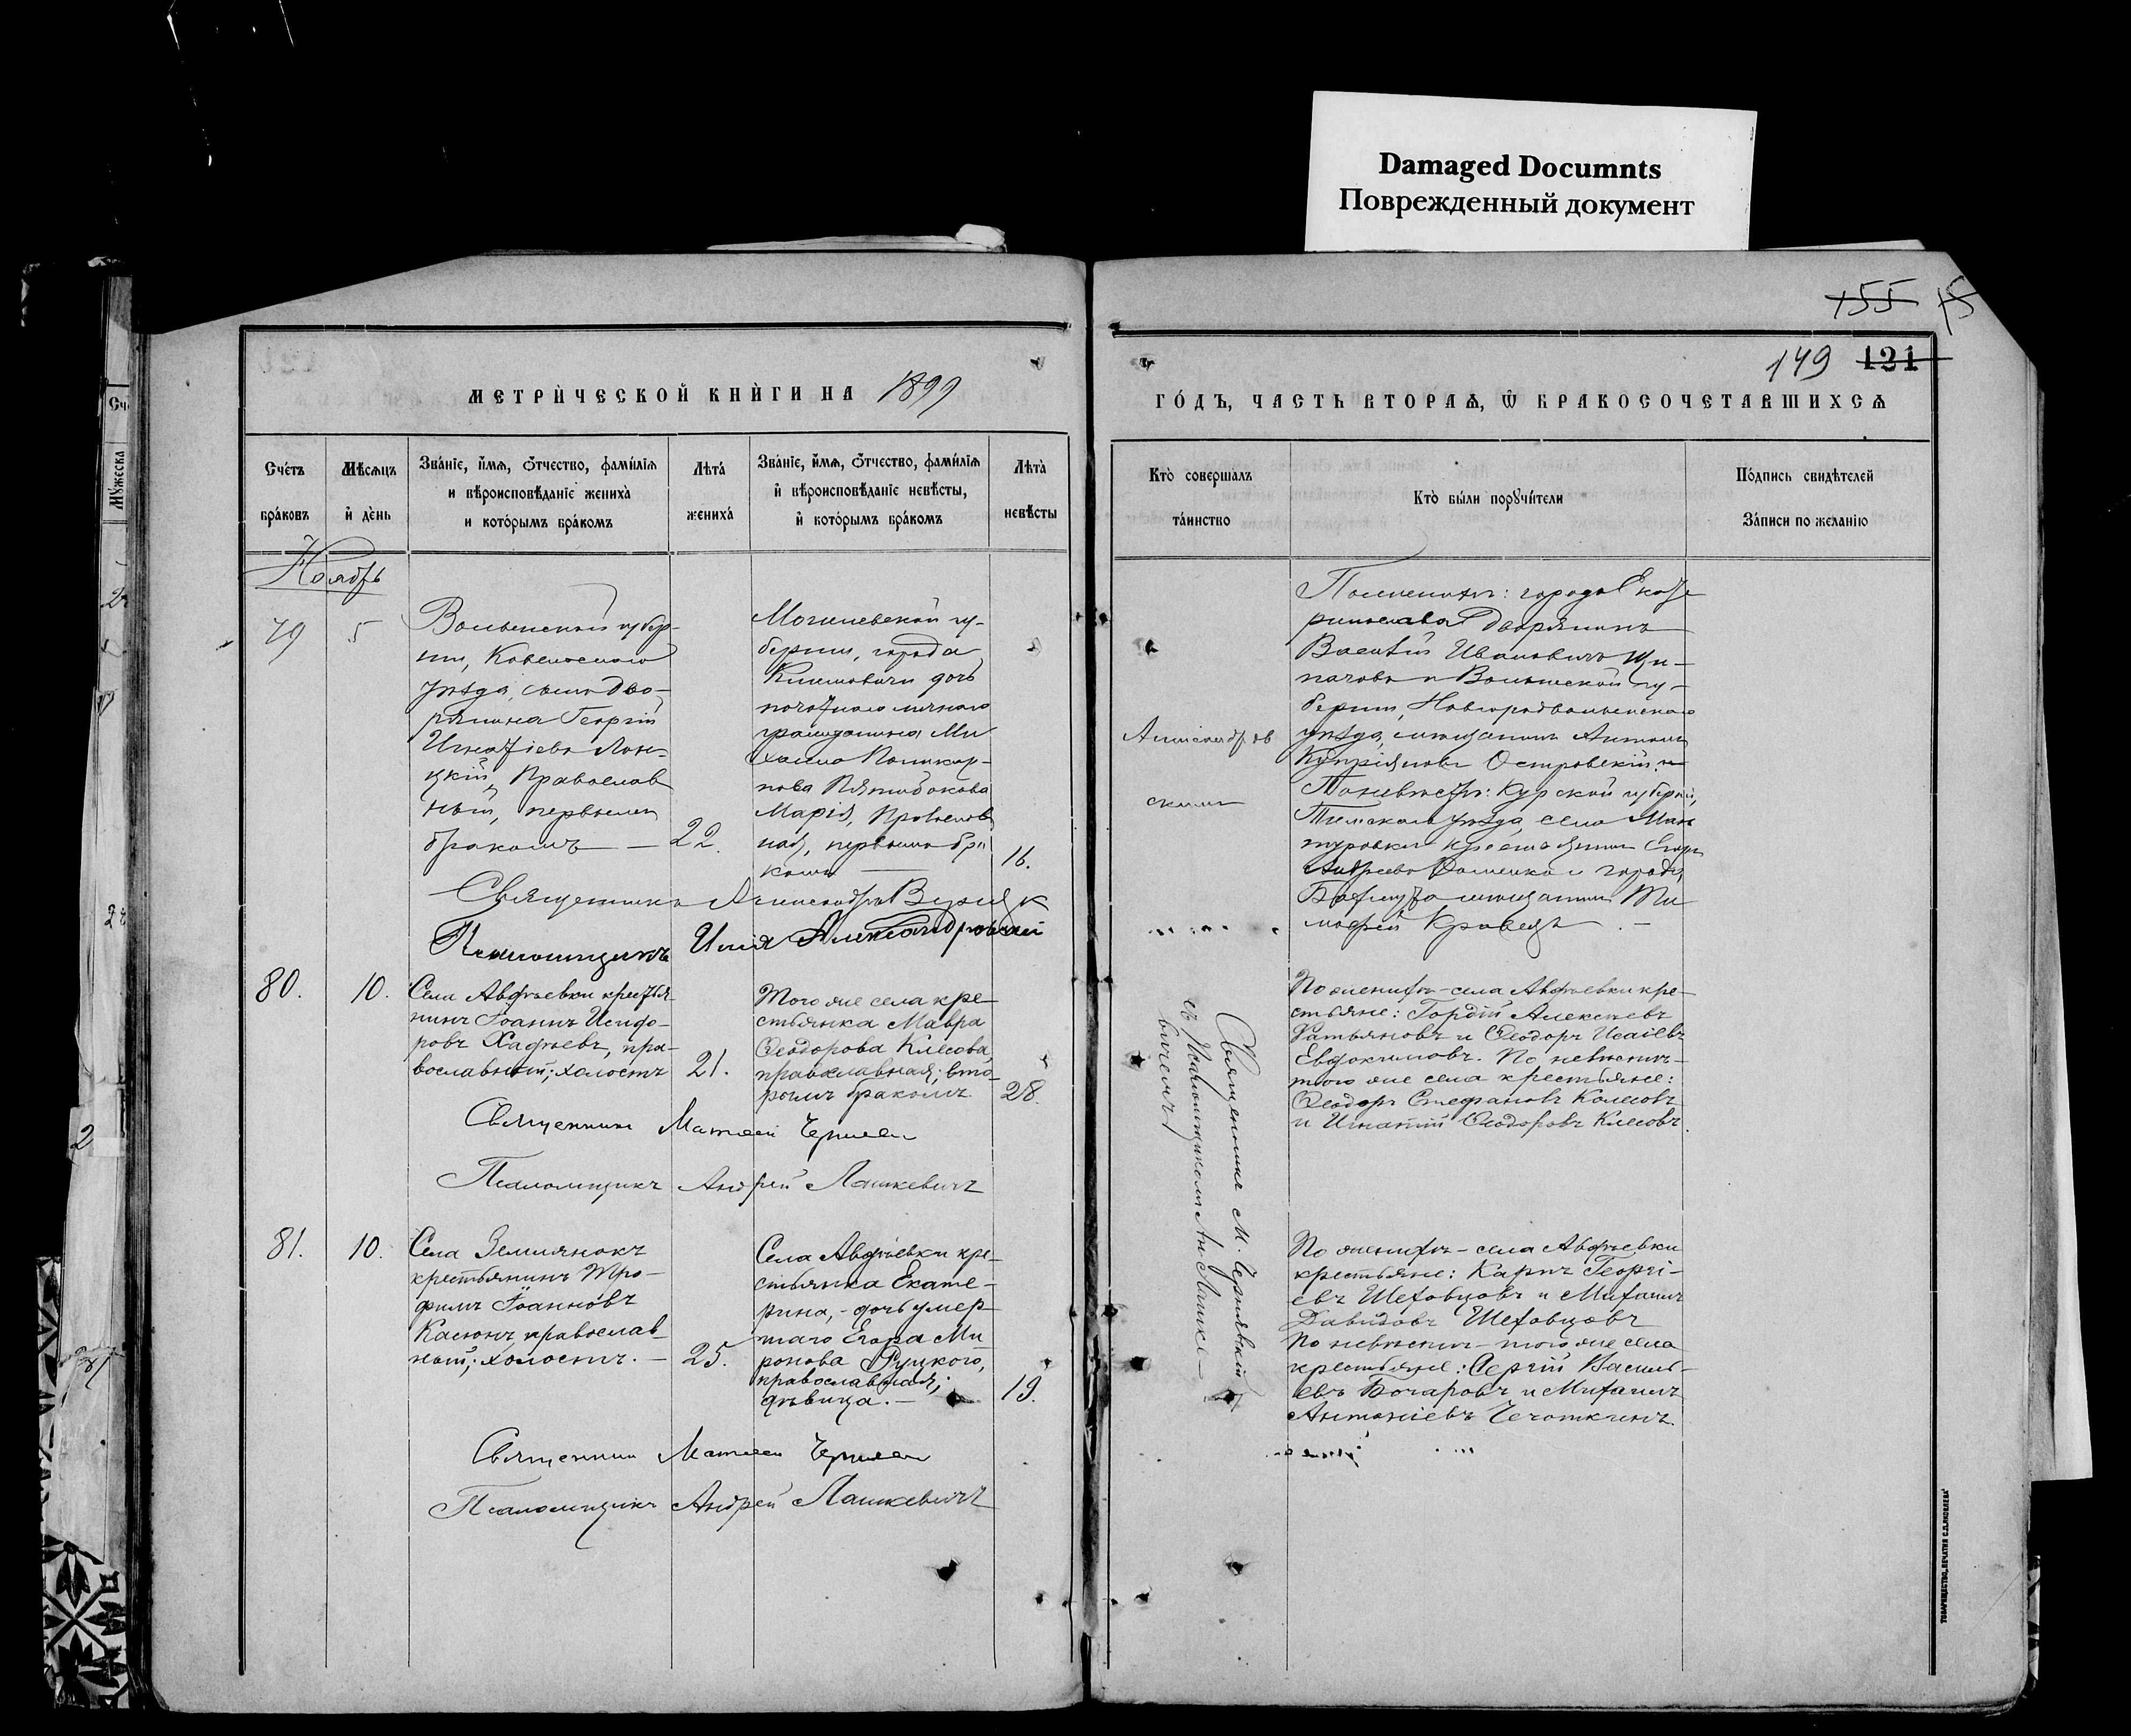 Damaged Documnts
Поврежденный документ
155 15
149 121
МЕТРИ́ЧЕСКОЙ КНИ́ГИ НА 1899
ГО́ДЪ, ЧАСТЬ ВТОРАѦ, Ѿ БРАКОСОЧЕТАВШИХСѦ
Сче́тъ
бра́ковъ
Мѣсѧцъ
и҆ де́нь
Зва́нїе, и҆́мѧ, о҆́тчество, фами́лїѧ
и вѣроисповѣданїе жениха̀
и кото́рымъ бра́комъ
Лѣта́
жениха́
Зва́нїе, и҆́мѧ, о҆́тчество, фами́лїѧ
и҆ вѣроисповѣданїе невѣсты,
и҆ кото́рымъ бра́комъ
Лѣта̀
невѣсты
Кто̀ соверша́лъ
та́инство
Кто̀ бы́ли порꙋчи́тели
По́дпись свидѣтелей
За́писи по жела́нїю
Ноябрь
79 5
Волынской губер-
нiи, Ковельскаго
уѣзда, сынъ дво-
рянина Георгiй
Игнатiевъ Лон-
цкiй, Православ
ный, первымъ
бракомъ — 22.
Могилевской гу-
бернiи, города
Климовичи дочь
почетнаго личнаго
гражданина Ми
хаила Поликар-
пова Пятибокова
Марiя, Православ
ная, первымъ бра
комъ — 16.
Александров
скимъ
По женихѣ: города Екате
ринослава Дворянинъ
Василiй Ивановичъ
и Волынской гу-
бернiи, Новоградволынскаго
уѣзда, мещанинъ Антонъ
Купрiяновъ Островскiй. и
По невѣстѣ: Курской губернiи,
Тимскаго уѣзда, села Ман
туровки крестьянинъ Егоръ
Андреевъ и города
Бахмута мещанинъ Ти
мофей Кравецъ. —
Священникъ Александръ
Псаломщикъ Илiя Александровскiй
80. 10.
Села Авдѣевки крестья-
нинъ Iоаннъ Исидо-
ровъ Хадѣевъ, пра-
вославный; холостъ 21.
Того же села кре-
стьянка Мавра
Ѳеодорова Клесова,
православная; вто-
рымъ бракомъ. 28.
По женихѣ – села Авдѣевки кре-
стьяне: Гордiй Алексѣевъ
Фатьяновъ и Ѳеодоръ Исаiевъ
Евдокимовъ. По невѣстѣ –
того же села крестьяне:
Ѳеодоръ Стефановъ Колесовъ
и Игнатiй Ѳеодоровъ Клесовъ.
Священникъ М. Чернявскiй
съ Псаломщикомъ Ан. Лашке-
вичемъ
Священникъ Матѳей
Псаломщикъ Андрей Лашкевичъ
81. 10.
Села Землянокъ
крестьянинъ Тро-
фимъ Iоанновъ
Касюнъ, православ-
ный; холостъ. — 25.
Села Авдѣевки кре-
стьянка Екате-
рина, – дочь умер-
шаго Егора Ми
ронова Руцкого,
православная;
дѣвица. — 19.
По женихѣ – села Авдѣевки
крестьяне: Карпъ Георгi-
евъ Шеховцовъ и Михаилъ
Давидовъ Шеховцовъ
По невѣстѣ – того же села
крестьяне: Сергiй Василь-
евъ Бочаровъ и Михаилъ
Антонiевъ Чечоткинъ.
Священникъ Матѳей
Псаломщикъ Андрей Лашкевичъ